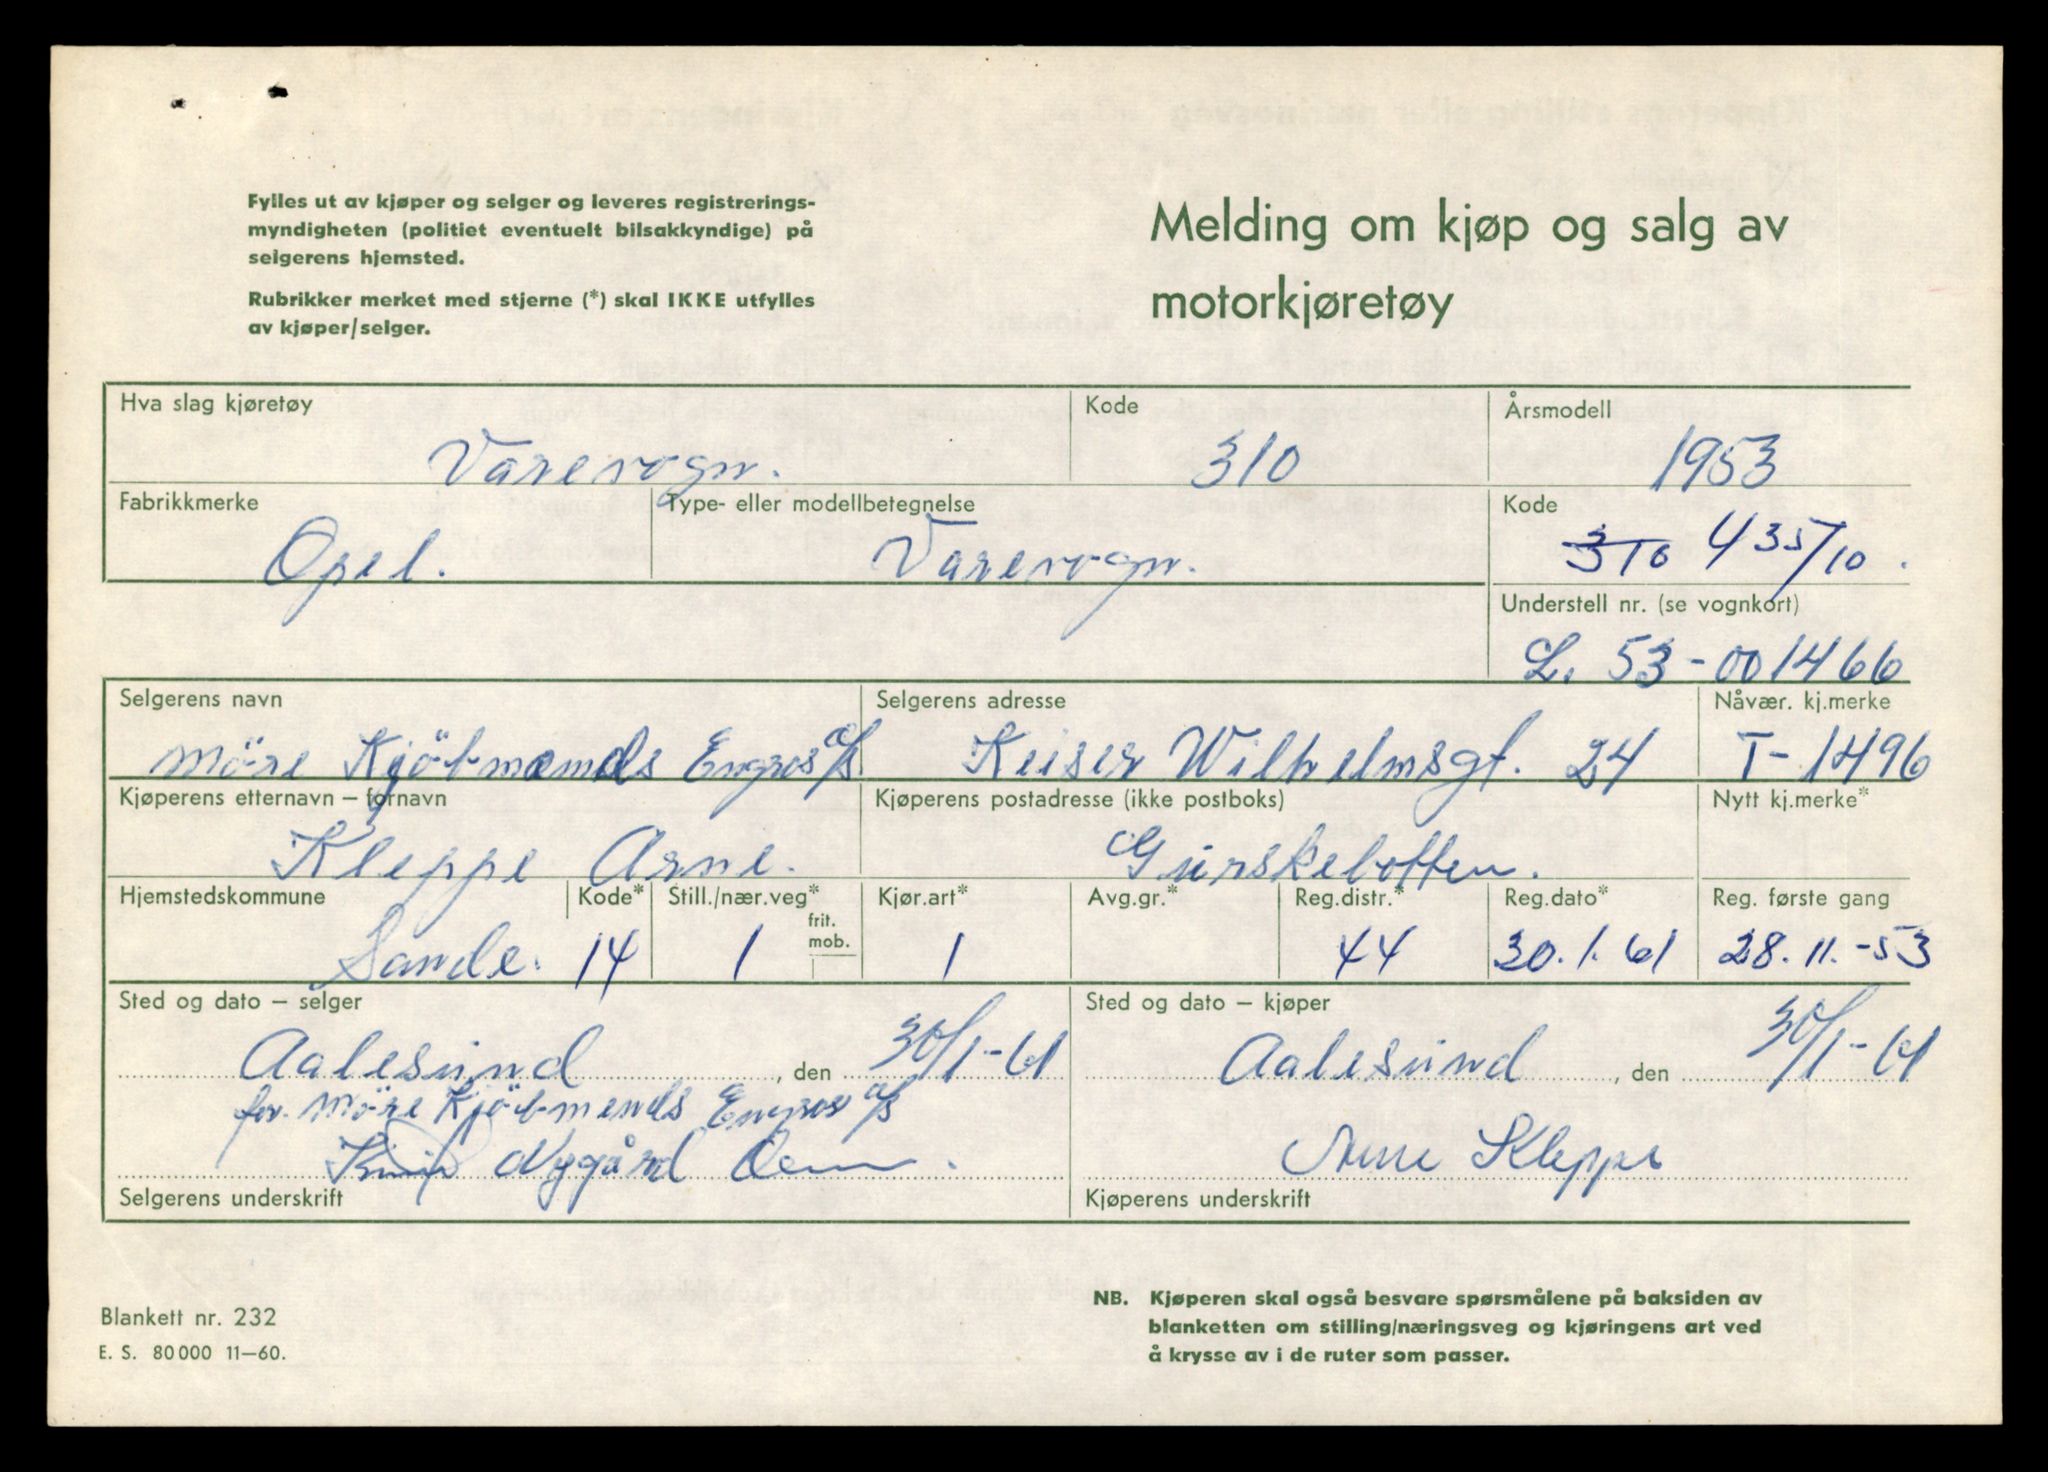 Fylles ut av kjøper og selger og leveres registrerings-
myndigheten (politiet eventuelt bilsakkyndige) på
selgerens hjemsted.
Rubrikker merket med stjerne (*) skal IKKE utfylles
av kjøper/selger.
Melding om kjøp og salg av
motorkjøretøy
Hva slag kjøretøy
Varevogn.
Kode
310
Årsmodell
1953
Fabrikkmerke
Opel.
Type- eller modellbetegnelse
Varevogn.
Kode
310 435/10.
Understell nr. (se vognkort)
L. 53-001466
Selgerens navn
Möre Kjöbmænds Engros a/s
Selgerens adresse
Keiser Wilhelmsgt. 24
Nåvær. kj.merke
T-1496
Kjøperens etternavn – fornavn
Kleppe Arne.
Kjøperens postadresse (ikke postboks)
Gurskebotten.
Nytt kj.merke*
Hjemstedskommune
Sande.
Kode*
14
Still./nær.veg*
1
frit.
mob.
Kjør.art*
1
Avg.gr.*
Reg.distr.*
44
Reg.dato*
30.1.61
Reg. første gang
28.11.-53
Sted og dato – selger
Aalesund, den 30/1-61
for Möre Kjöbmends Engros a/s
Nygård
Selgerens underskrift
Sted og dato – kjøper
Aalesund, den 30/1-61
Arne Kleppe
Kjøperens underskrift
Blankett nr. 232
E. S. 80000 11–60.
NB. Kjøperen skal også besvare spørsmålene på baksiden av
blanketten om stilling/næringsveg og kjøringens art ved
å krysse av i de ruter som passer.